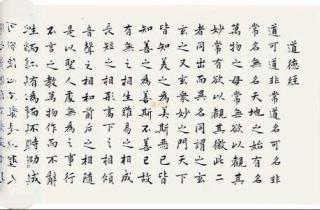 道德經
道可道非常道名可名非
常名無名天地之始有名
萬物之母常無欲以觀其
妙常有欲以觀其徼此二
者同出而異名同謂之
玄之又玄衆妙之門天下
皆知美之為美斯惡已皆
知善之為善斯不善已故
有無之相生難易之相成
長短之相形高下之相傾
音聲之相和前后之相隨
是以聖人處無為之事行
不言之教萬物作而不辭
生而不有為而不恃功成